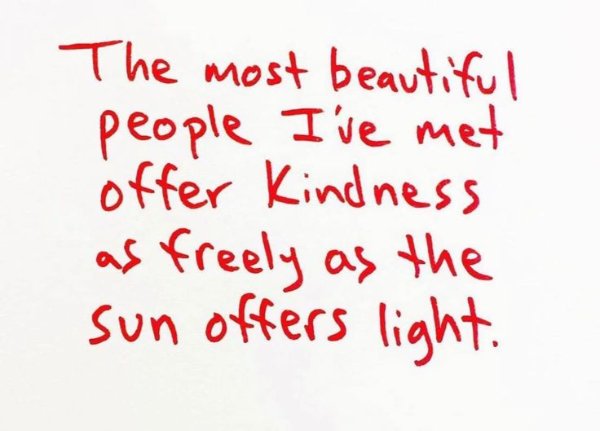 The most beautiful
people I've met
offer Kindness
as freely as the
sun offers light.